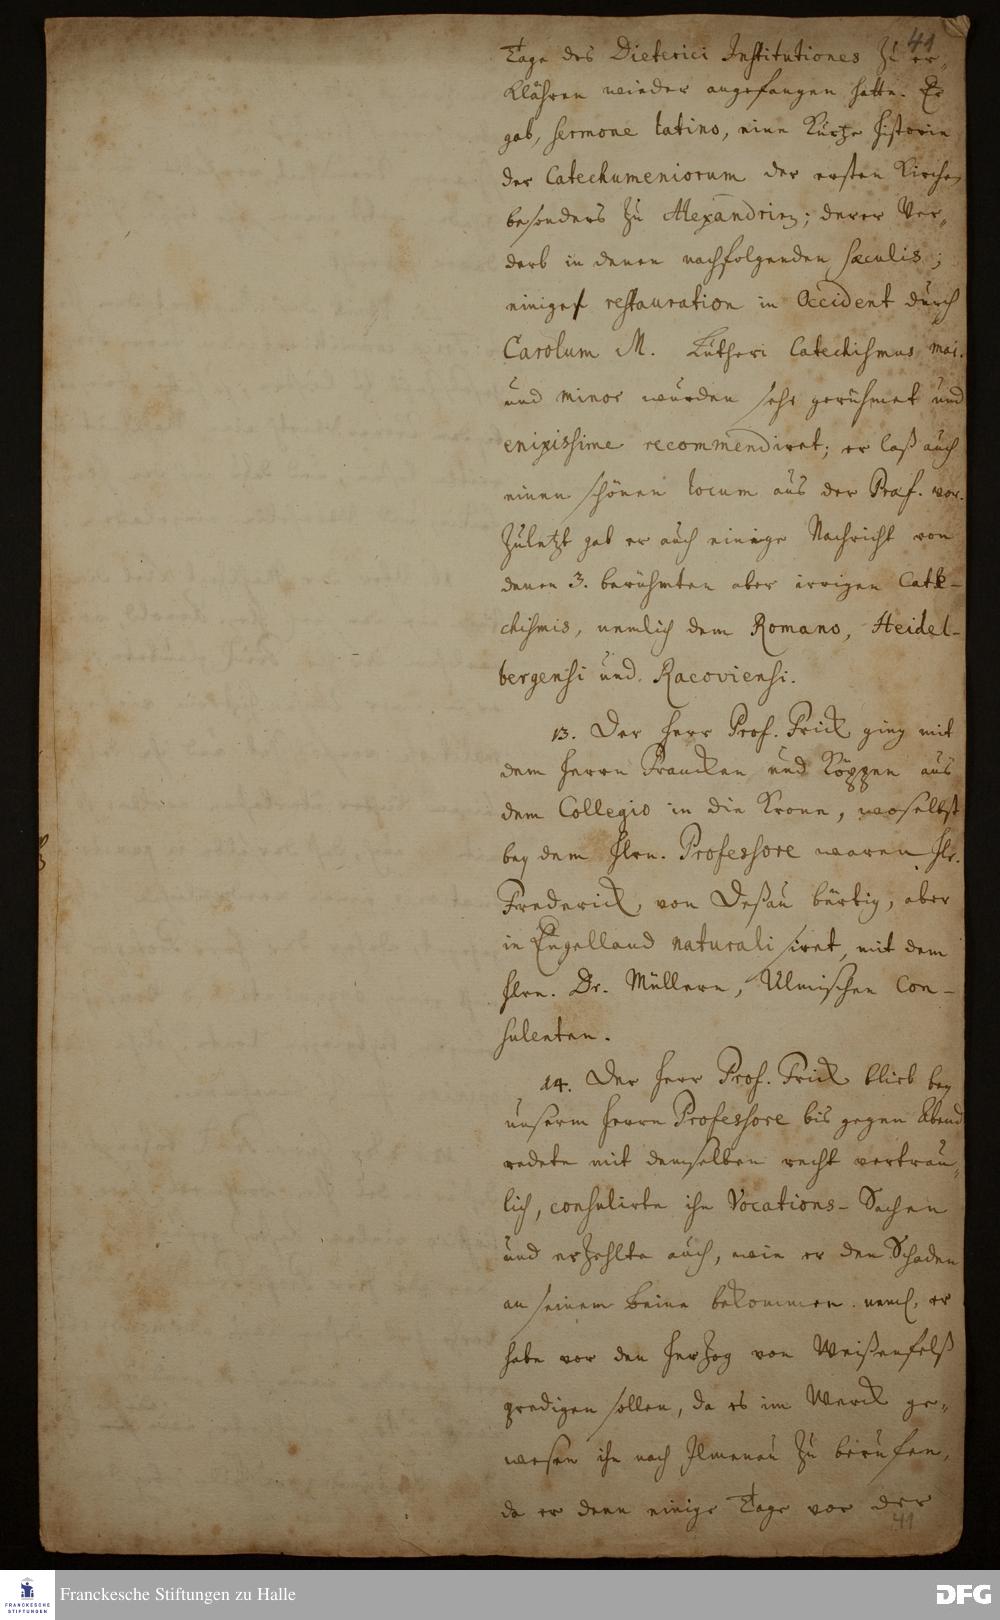 41
Tage des Dieterici Institutiones zu er„
klähren wieder angefangen hatte. Er
gab, sermone latino, eine kurze Historie
der Catechumeniorum der ersten Kirchen
besonders zu Alexandrien; derer Ver„
derb in denen nachfolgenden sæculis;
einiger restauration in Occident durch
Carolum M. Lutheri Catechismus mai.
und minor wurden sehr gerühmet und
enixissime recommendiret; er laß auch
einen schönen locum aus der Præf. vor.
Zuletzt gab er auch einige Nachricht von
denen 3. berühmten aber irrigen Cate-
chismis, nemlich dem Romano, Heidel-
bergensi und Racoviensi.
13. Der Herr Prof. Frick ging mit
dem Herrn Francken und Köppen aus
dem Collegio in die Krone, woselbst
bey dem Hrn. Professore waren Hr.
Frederick, von Deßau bürtig, aber
in Engelland naturalisiret, mit dem
Hrn. Dr. Müllern, Ulmischen Con-
sulenten.
14. Der Herr Prof. Frick blieb bey
unserm Herrn Professore bis gegen Abend
redete mit demselben recht vertrau„
lich, consulirte ihn Vocations-Sachen
und erzehlte auch, wie er den Schaden
an seinem Beine bekommen. neml. er
habe vor den Herzog von Weißenfelß
predigen sollen, da es im Werck ge„
wesen ihn nach Ilmenau zu beruffen,
da er denn einige Tage vor der
41
FRANCKESCHE
STIFTUNGEN
Franckesche Stiftungen zu Halle
DFG